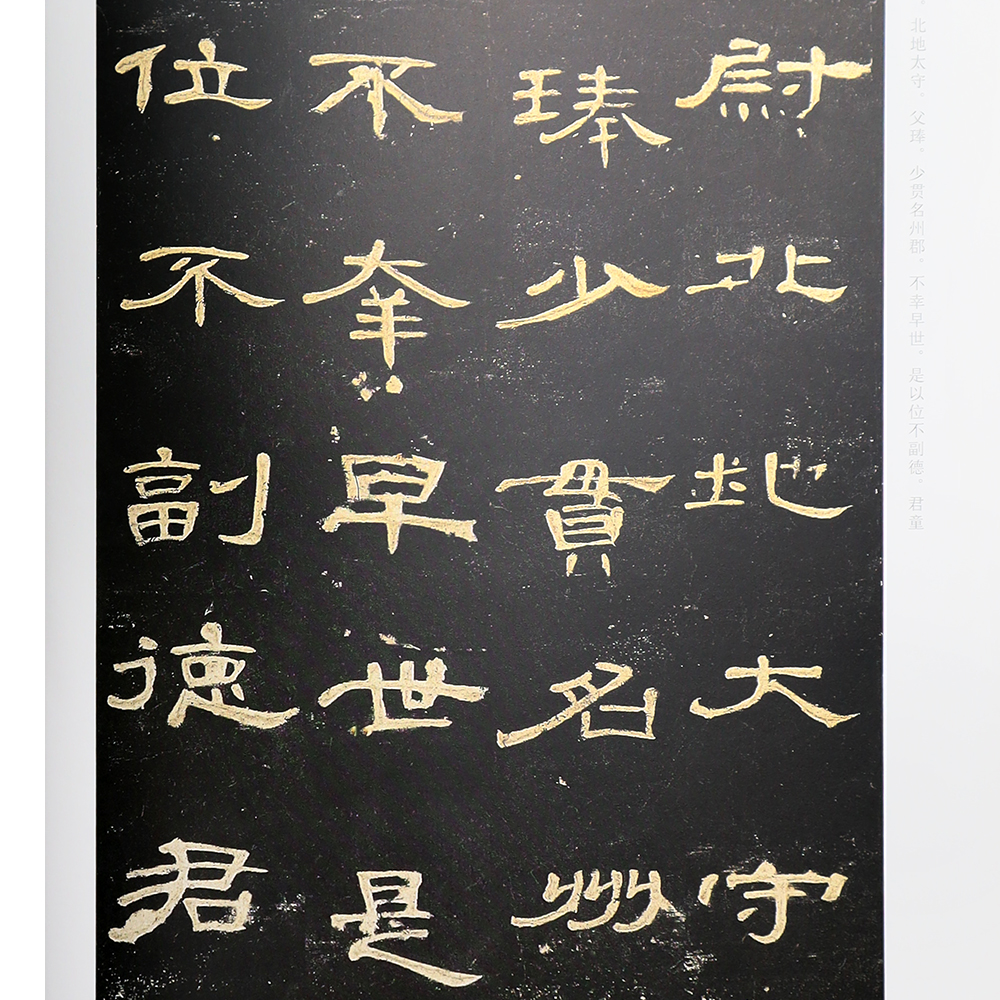 。北地太守。父琫。少贯名州郡。不幸早世。是以位不副德。君童
尉北地大守
琫少貫名州
不幸早世是
位不副德君